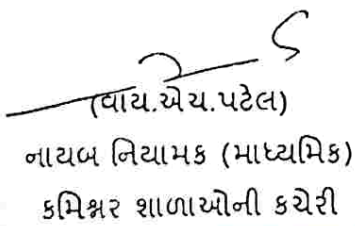 (વાય.એચ.પટેલ)
નાયબ નિયામક (માધ્યમિક)
કમિશ્નર શાળાઓની કચેરી